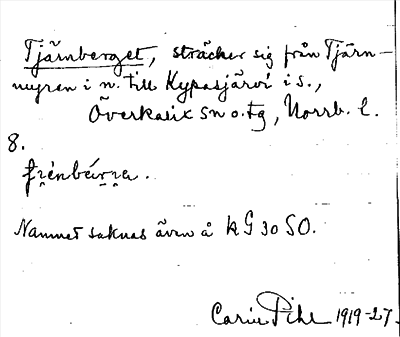 Tjärnberget, sträcker sig från Tjärn-
myran i n. till Kypasjärvi i s.,
Överkalix sn o. tg, Norrb. l.
8.
Namnet saknas även å KG 30 SO.
Carin Pihl 1919-27.